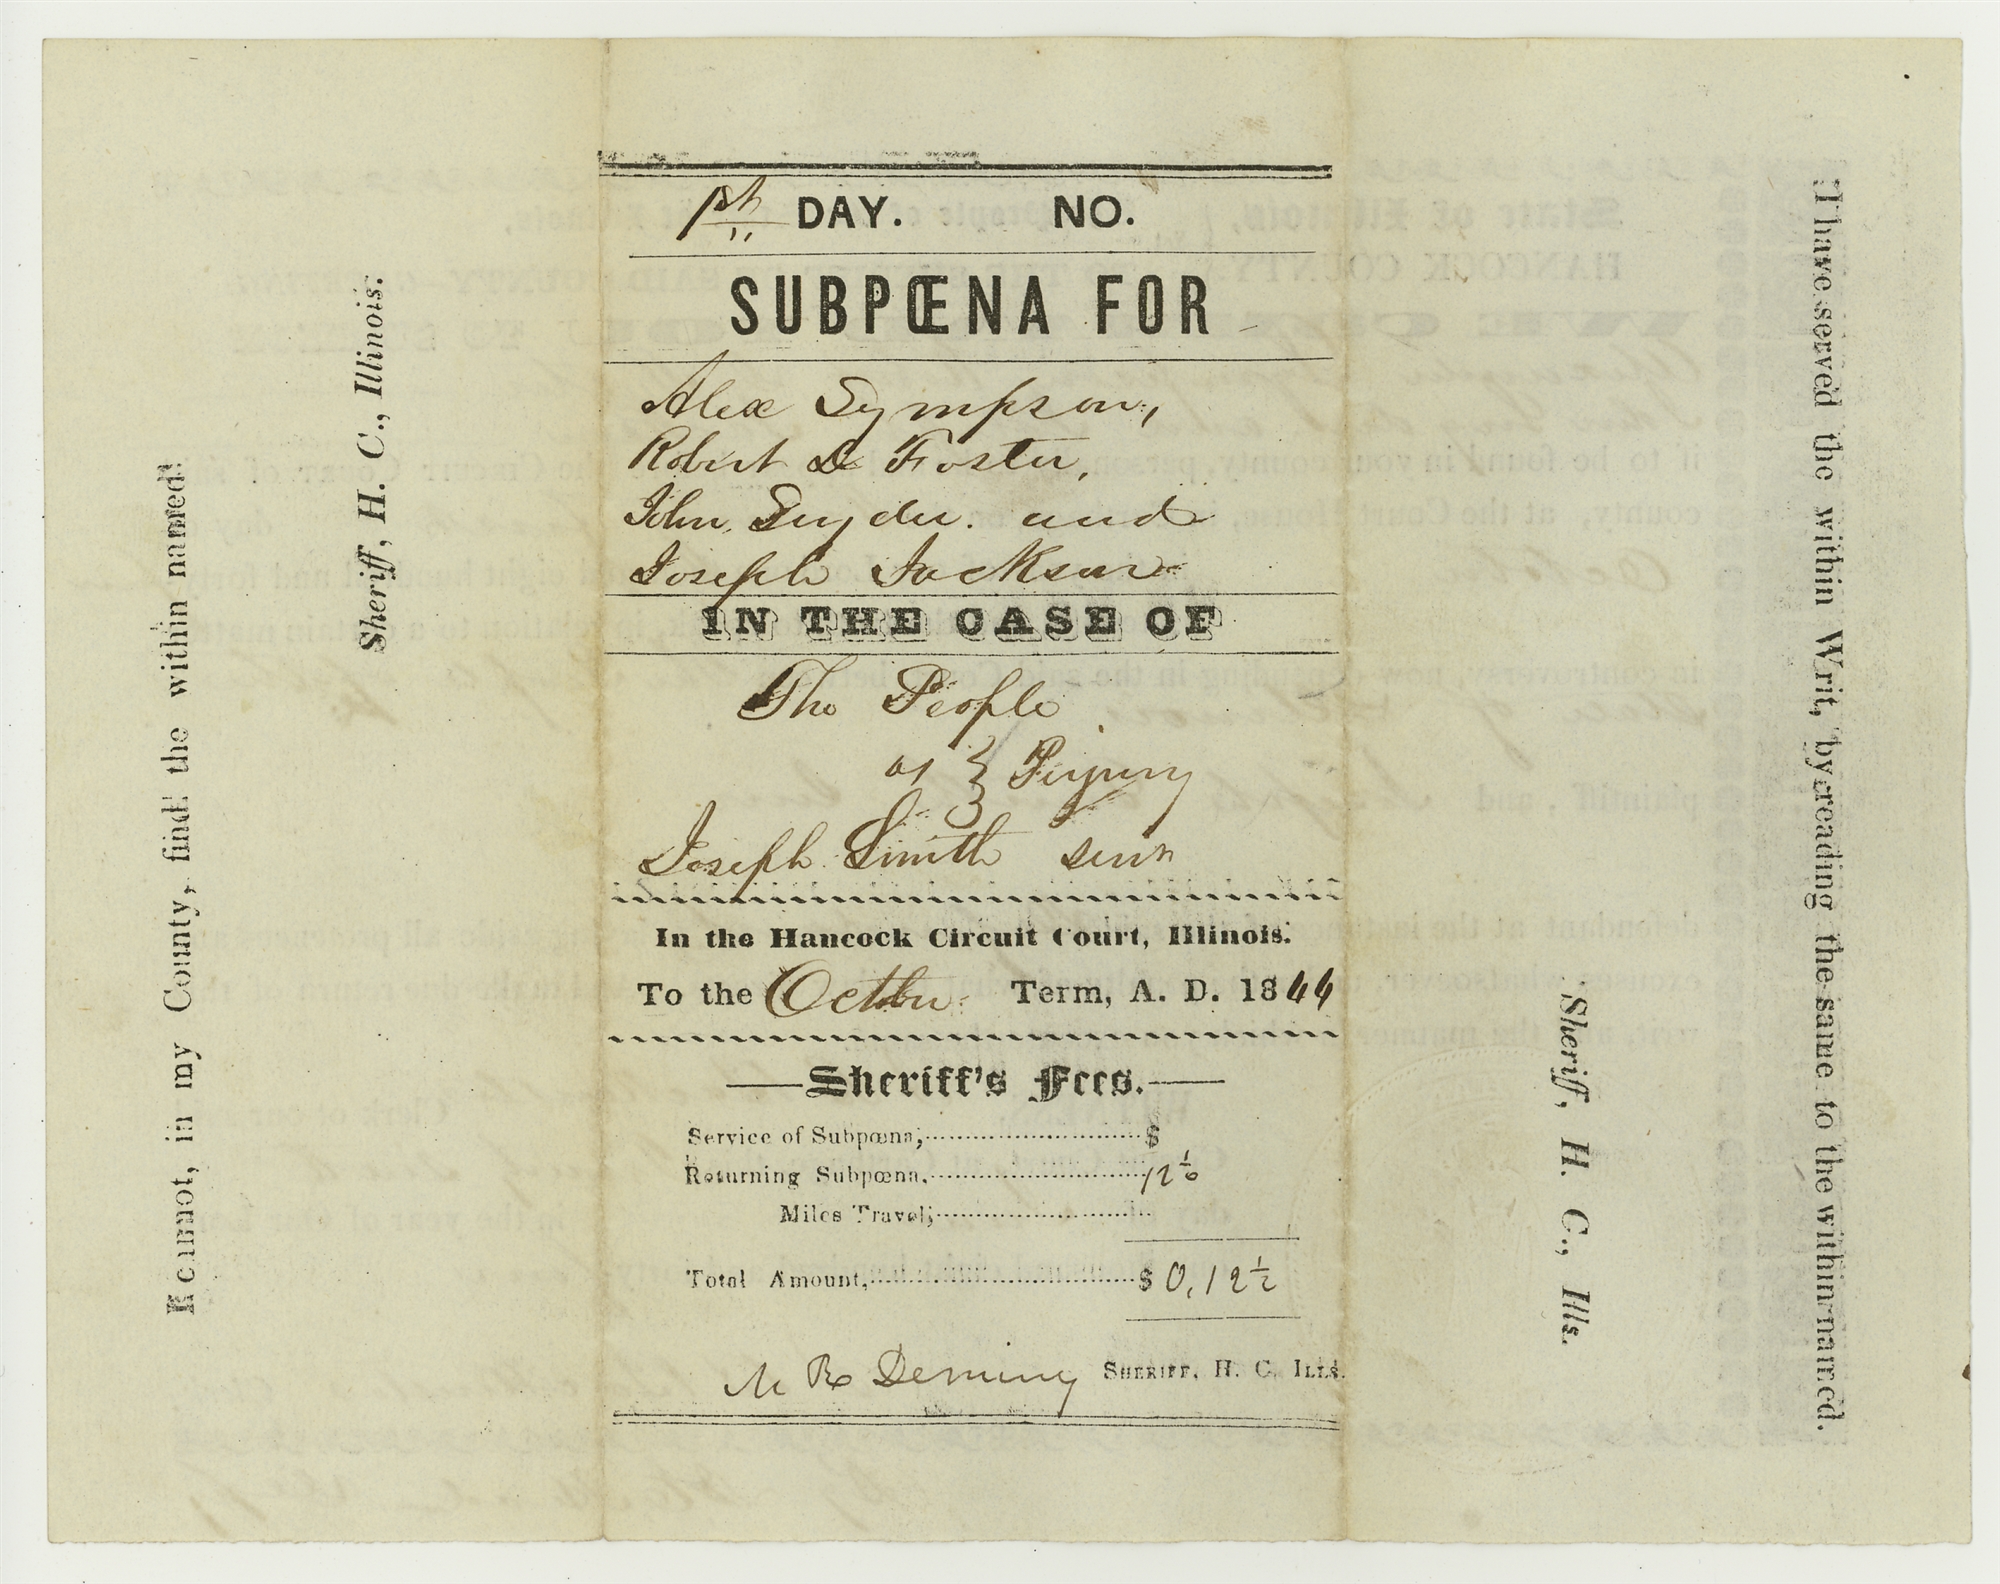 I cannot, in my County, find the within named
Sheriff, H. C., Illinois.
1st DAY. NO.
SUBPŒNA FOR
Alex Sympson,
Robert D Foster,
John Snyder. and
Joseph Jackson
IN THE CASE OF
The People
vs } Perjury
Joseph Smith senr
In the Hancock Circuit Court, Illinois.
To the Octbr Term, A. D. 1844
Sheriff's Fees.
Service of Subpœna, $
Returning Subpœna, 12½
Miles Travel,
Total Amount, $ 0,12½
M R Deming SHERIFF, H. C. ILLS.
Sheriff, H. C., Ills.
I have served the within Writ, by reading the same to the within named.